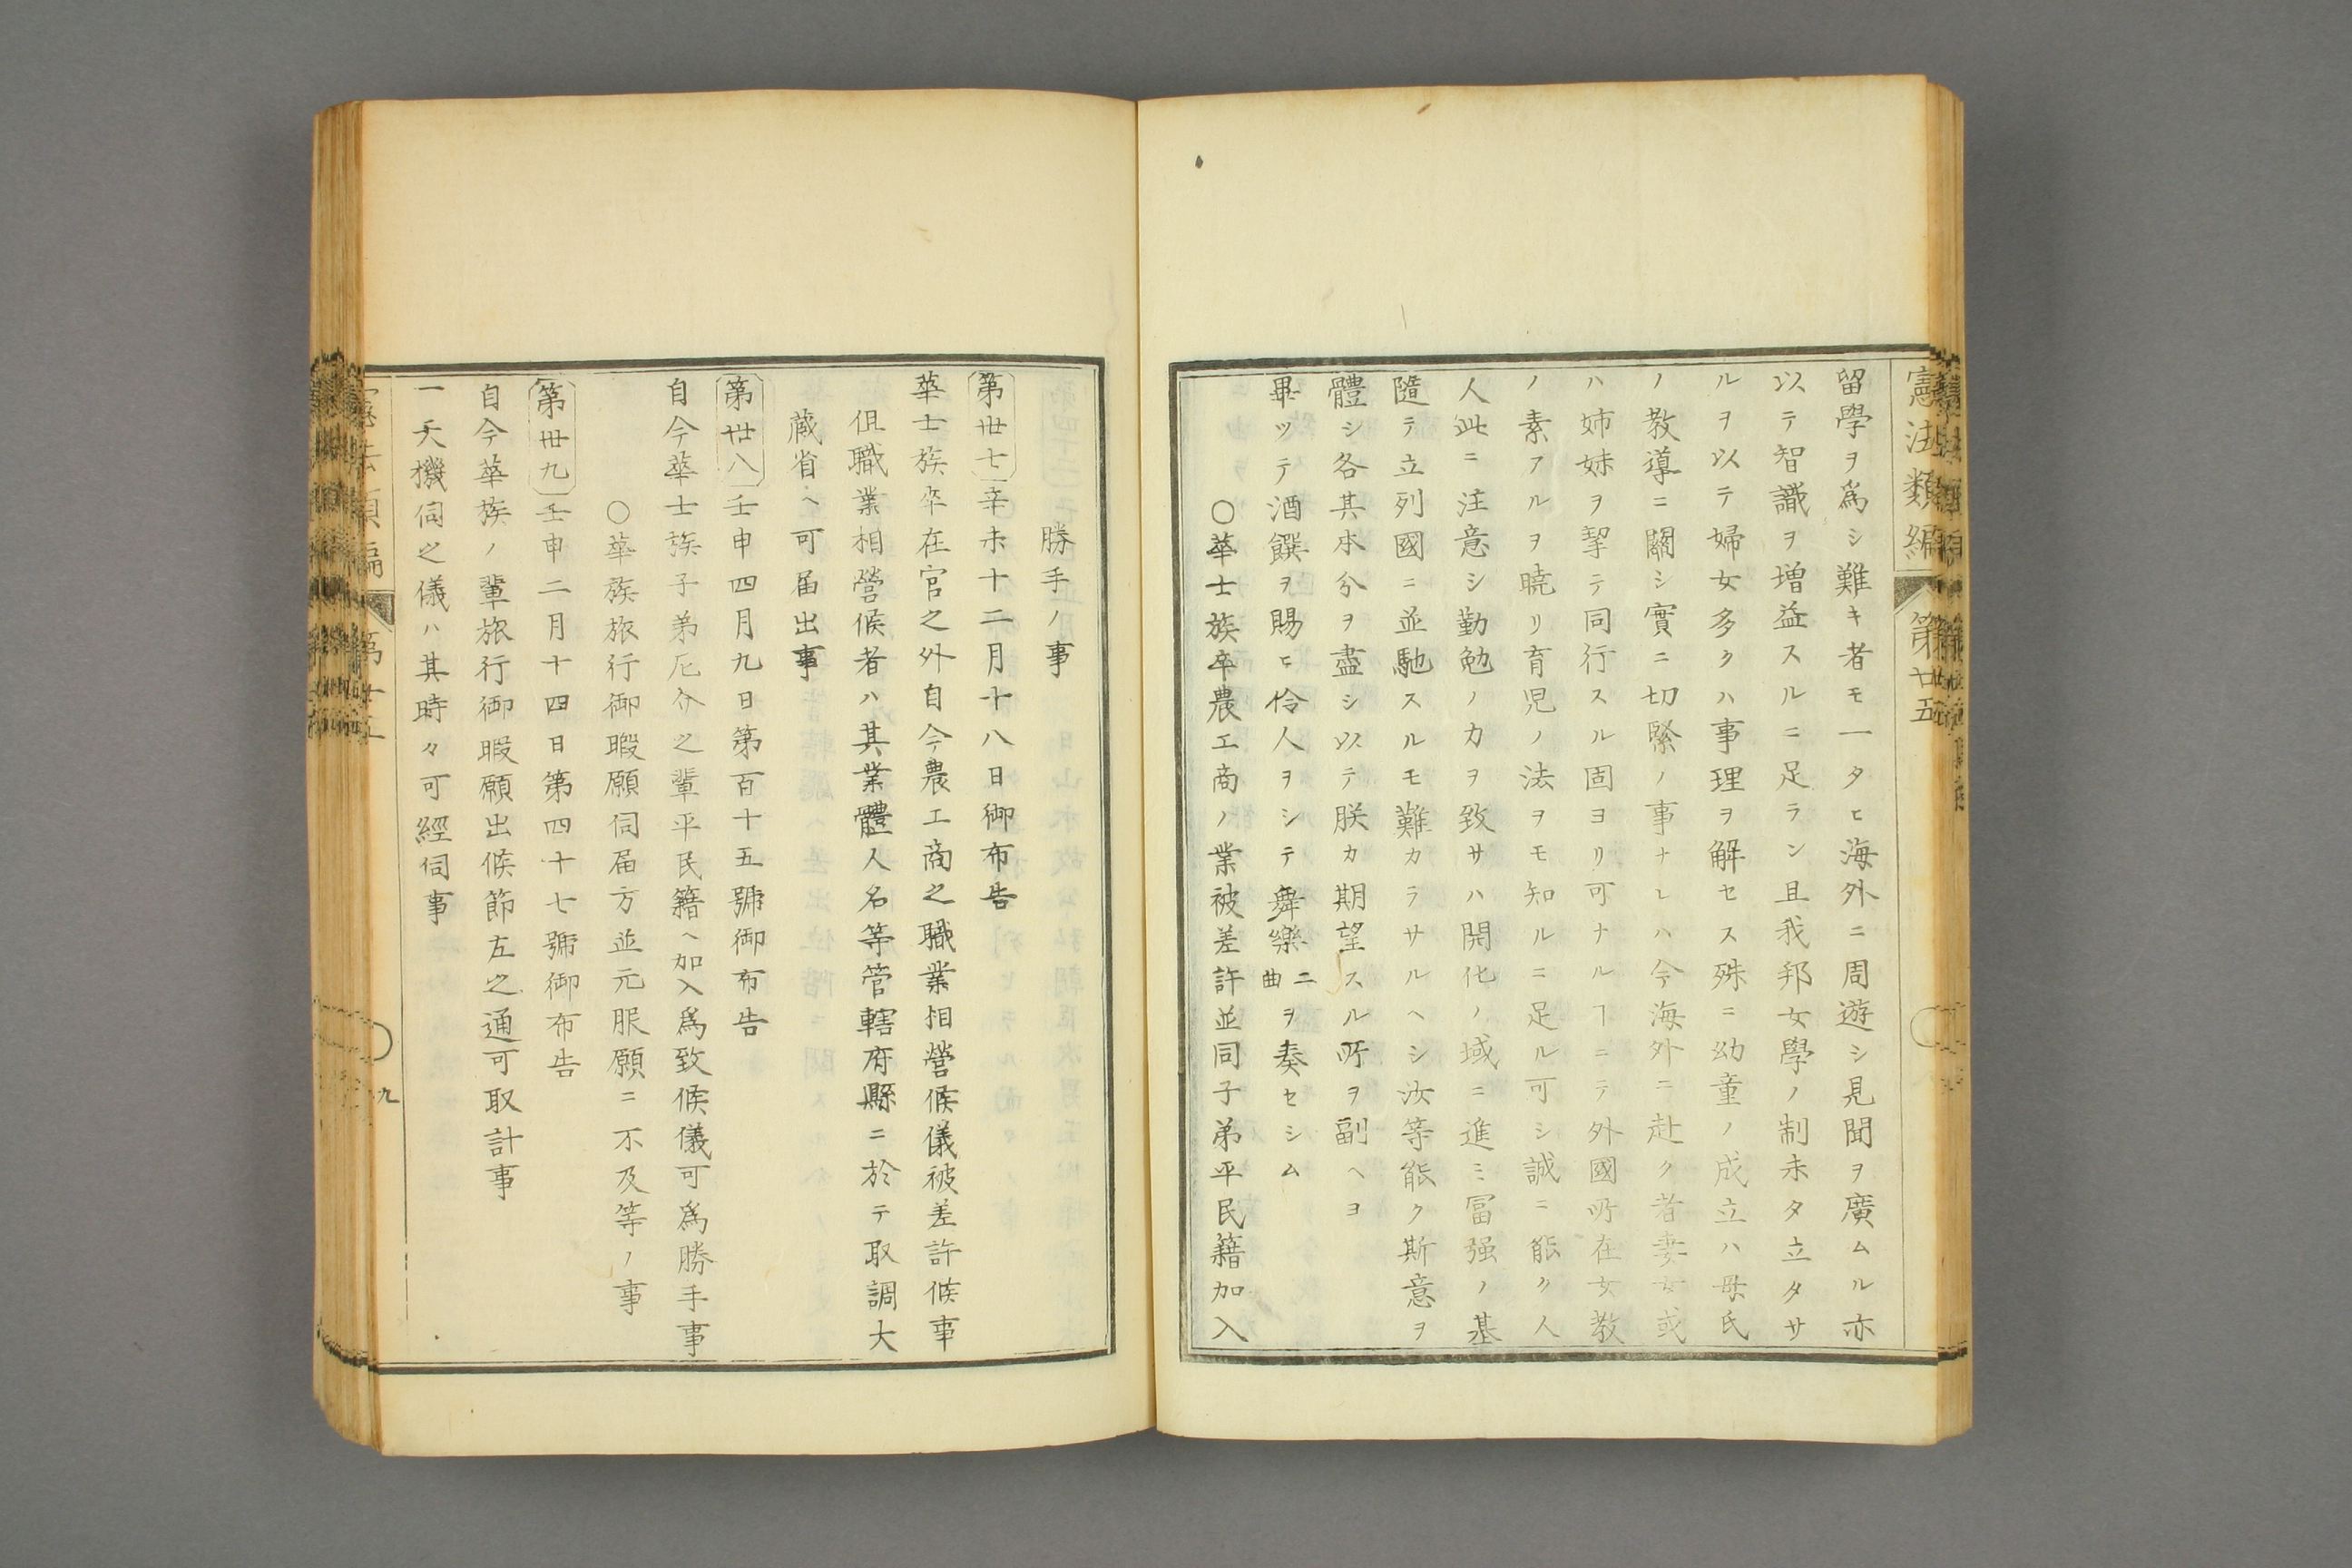 憲法類編 第廿五
留學ヲ爲シ難キ者モ一タヒ海外ニ周遊シ見聞ヲ廣ムル亦
以テ智識ヲ増益スルニ足ラン且我邦女學ノ制未タ立タサ
ルヲ以テ婦女多クハ事理ヲ解セス殊ニ幼童ノ成立ハ母氏
ノ教導ニ關シ實ニ切緊ノ事ナレハ今海外ニ赴ク者妻女或
ハ姉妹ヲ挈テ同行スル固ヨリ可ナルヿニテ外國所在女教
ノ素アルヲ曉リ育児ノ法ヲモ知ルニ足ル可シ誠ニ能ク人
人此ニ注意シ勤勉ノ力ヲ致サハ開化ノ域ニ進ミ冨强ノ基
隨テ立列國ニ並馳スルモ難カラサルヘシ汝等能ク斯意ヲ
體シ各其本分ヲ盡シ以テ朕カ期望スル所ヲ副ヘヨ
畢ツテ酒饌ヲ賜ヒ伶人ヲシテ舞樂二曲ヲ奏セシム
○華士族卒農工商ノ業被差許並同子弟平民籍加入
勝手ノ事
第卅七 辛未十二月十八日御布告
華士族卒在官之外自今農工商之職業相營候儀被差許候事
但職業相營候者ハ其業體人名等管轄府縣ニ於テ取調大
蔵省ヘ可届出事
第卅八 壬申四月九日第百十五號御布告
自今華士族子弟厄介之輩平民籍ヘ加入爲致候儀可爲勝手事
○華族旅行御暇願伺届方並元服願ニ不及等ノ事
第卅九 壬申二月十四日第四十七號御布告
自今華族ノ輩旅行御暇願出候節左之通可取計事
一天機伺之儀ハ其時々可經伺事
九